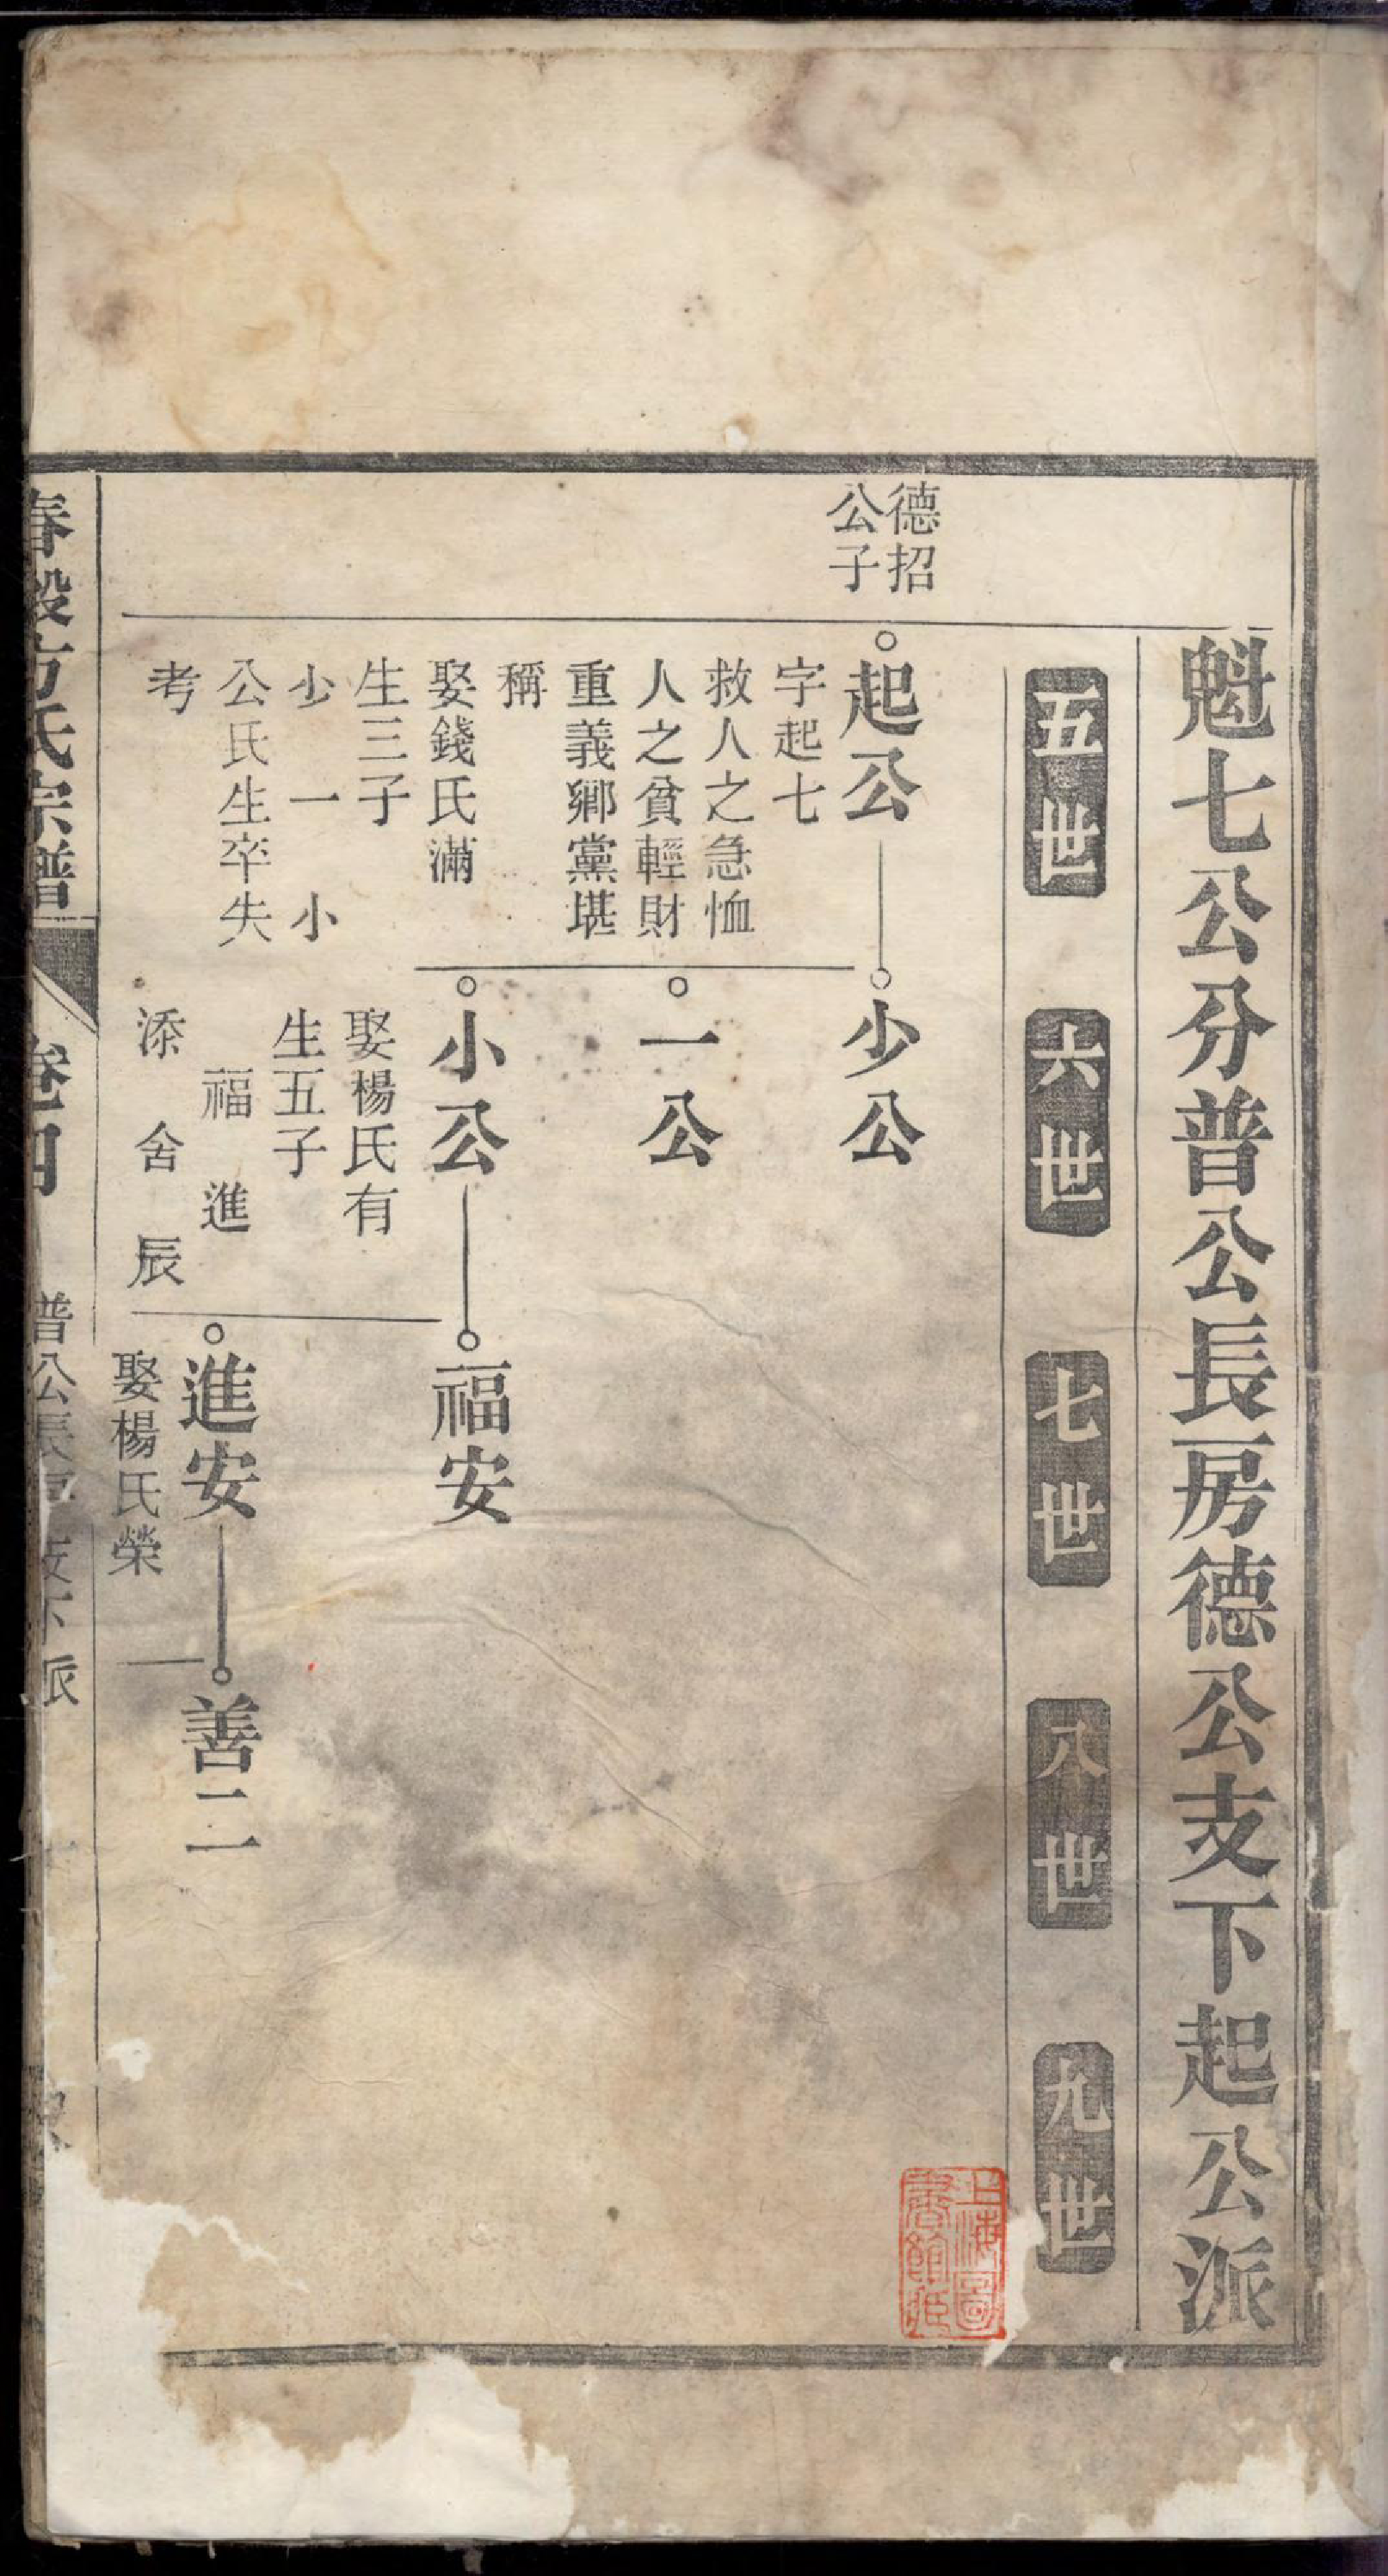 魁七公分普公長房德公支下起公派
五世
六世
七世
八世
九世
德招
公子
起公
字起七
救人之急恤
人之貧輕財
重義鄉黨堪
稱
娶錢氏滿
生三子
少 一 小
公氏生卒失
考
少公
一公
小公
娶楊氏有
生五子
福 進
添 舍 辰
福安
進安
娶楊氏榮
善二
上海圖
書館藏
春穀方氏宗譜
卷四
普公長房支下派